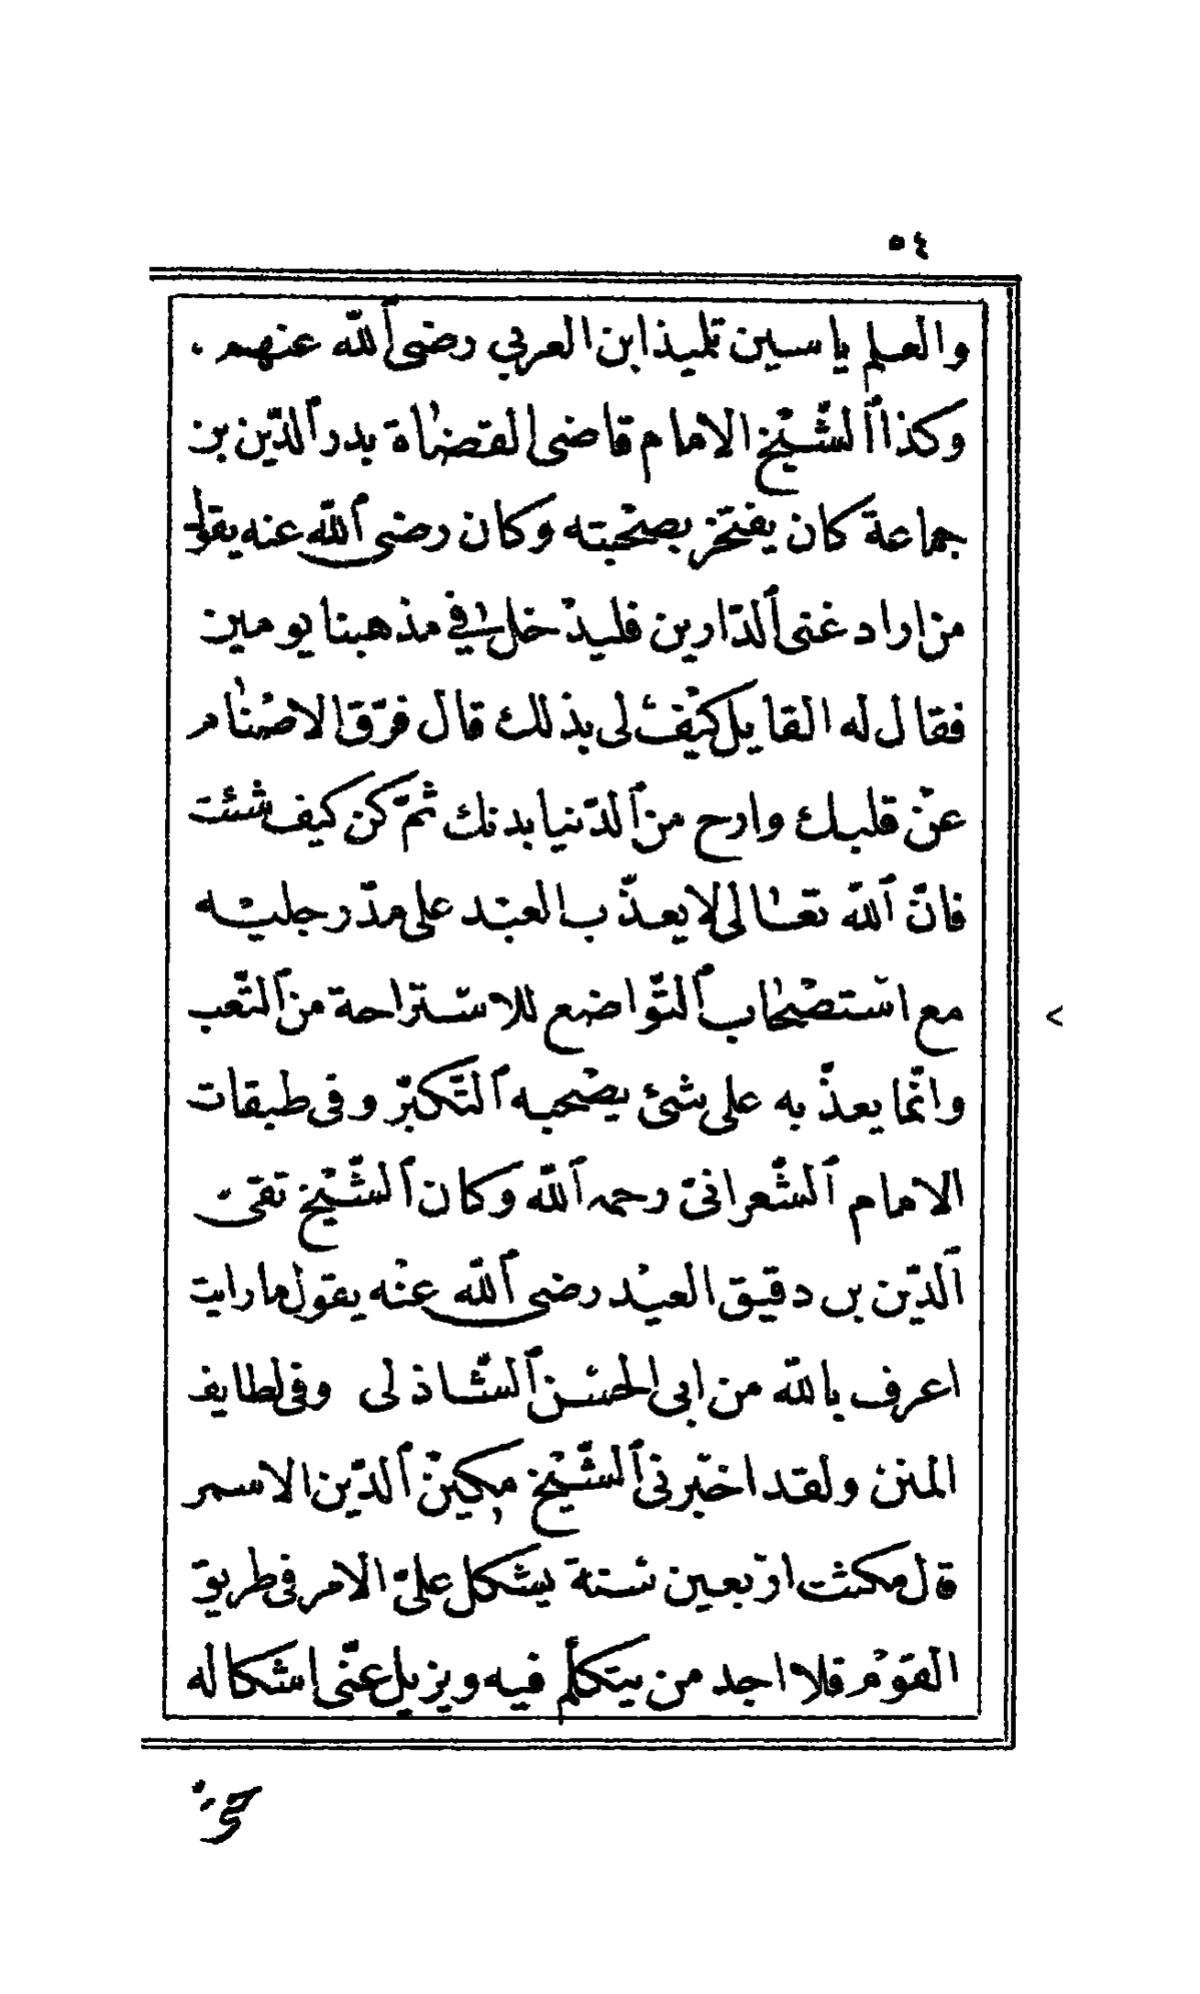 ٥٤
والعلم ياسين تلميذ ابن العربي رضى ٱلله عنهم .
وكذا ٱلشّيْخ الامام قاضى القضاة بدر ٱلدّين بن
جماعة كان يفتخر بصحْبته وكان رضى ٱللّه عنه يقول
من اراد غنى ٱلدّارين فليدْخل فى مذهبنا يومين
فقال له القايل كيْف لى بذلك قال فرّق الاصْنام
عنْ قلبك وارح من ٱلدّنيا بدنك ثمّ كن كيف شئت
فانّ ٱللّه تعالى لا يعذّب العبْد على مدّ رجليْه
مع اسْتصْحاب ٱلتّواضع للاسْتراحة من ٱلتّعب
وانّما يعذّ به على شئ يصْحبه ٱلتّكبّر وفى طبقات
الامام ٱلشّعرانىّ رحمه ٱللّه وكان ٱلشّيْخ تقىّ
ٱلدّين بن دقيق العيْد رضى ٱللّه عنْه يقول ما رايت
اعرف بالله من ابى الحسن ٱلشّاذلى وفى لطايف
المنن ولقد اخبْرنى ٱلشّيْخ مكين ٱلدّين الاسمر
قال مكثت ارْبعين سنة يشكل علىّ الامر فى طريق
القوْم فلا اجد من يتكلّم فيه ويزيل عنّى اشكاله
حتّى